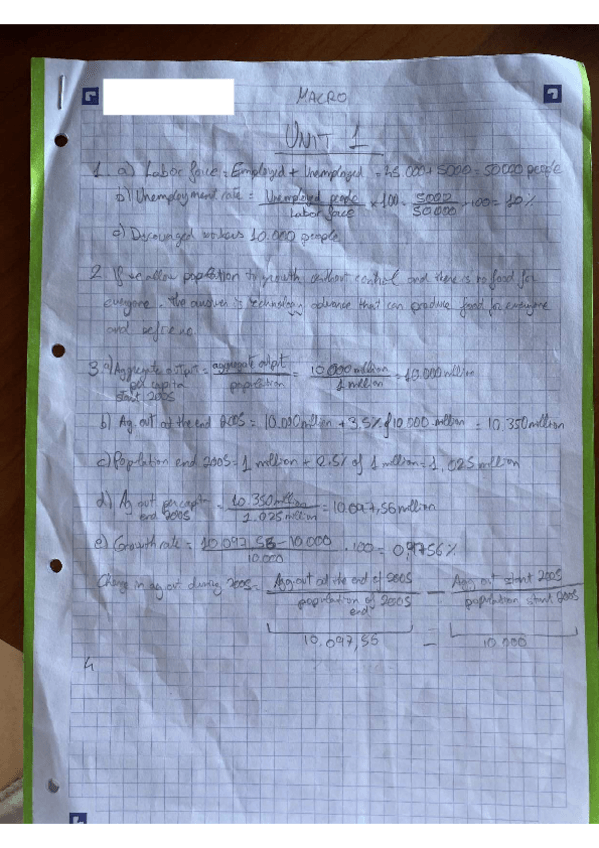 MACRO
UNIT 1
1. a) Labor force = Employed + Unemployed = 45 000 + 5000 = 50000 people
b) Unemployment rate = Unemployed people / Labor force × 100 = 5000 / 50 000 · 100 = 10%
c) Discouraged workers 10.000 people
2. If we allow population to growth without control and there is no food for
everyone. The answer is technology advance that can produce food for everyone
and
3. a) Aggregate output per capita start 2005 = aggregate output / population = 10.000 million / 1 million = 10.000 million
b) Ag. out at the end 2005 = 10.000 million + 3,5% of 10.000 million = 10.350 million
c) Population end 2005 = 1 million + 2.5% of 1 million = 1,025 million
d) Ag out per capita end 2005 = 10.350 million / 1.025 million = 10.097,56 million
e) Growth rate = 10.097,56 - 10.000 / 10.000 · 100 = 0,9756%
Change in ag out during 2005 = Agg out at the end of 2005 / population of 2005 end - Agg out start 2005 / population start 2005
10.097,56 - 10.000
4